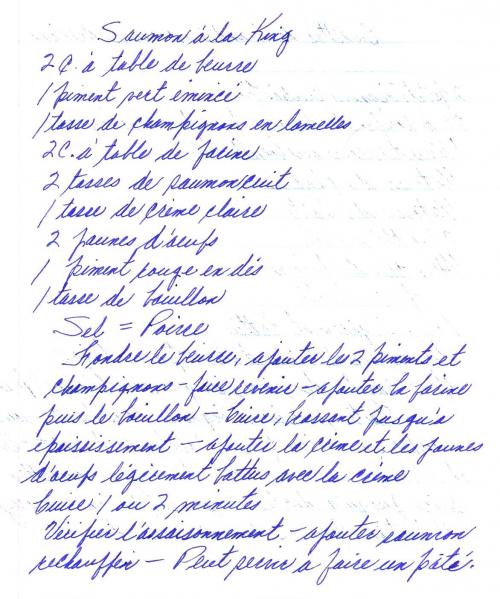 Saumon à la King
2 C. à table de beurre
1 piment vert émincé
1 tasse de champignons en lamelles
2 C. à table de farine
2 tasses de saumon cuit
1 tasse de crème claire
2 jaunes d'oeufs
1 piment rouge en dés
1 tasse de bouillon
Sel = Poivre
Fondre le beurre, ajouter les 2 piments et
champignons - faire revenir - ajouter la farine
puis le bouillon - Cuire, brassant jusqu'à
épaississement - ajouter la crème et les jaunes
d'oeufs légèrement battus avec la crème
Cuire 1 ou 2 minutes
Vérifier l'assaisonnement - ajouter saumon
réchauffer - Peut servir a faire un pâté.